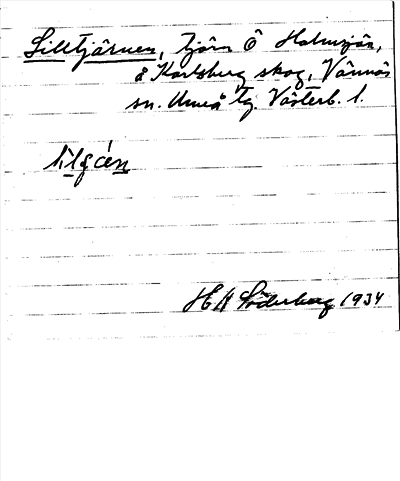 Lilltjärnen, tjärn Ö Holmsjön,
å Karlsberg skog, Vännäs
sn. Umeå tg. Västerb. l.
Söderberg 1934